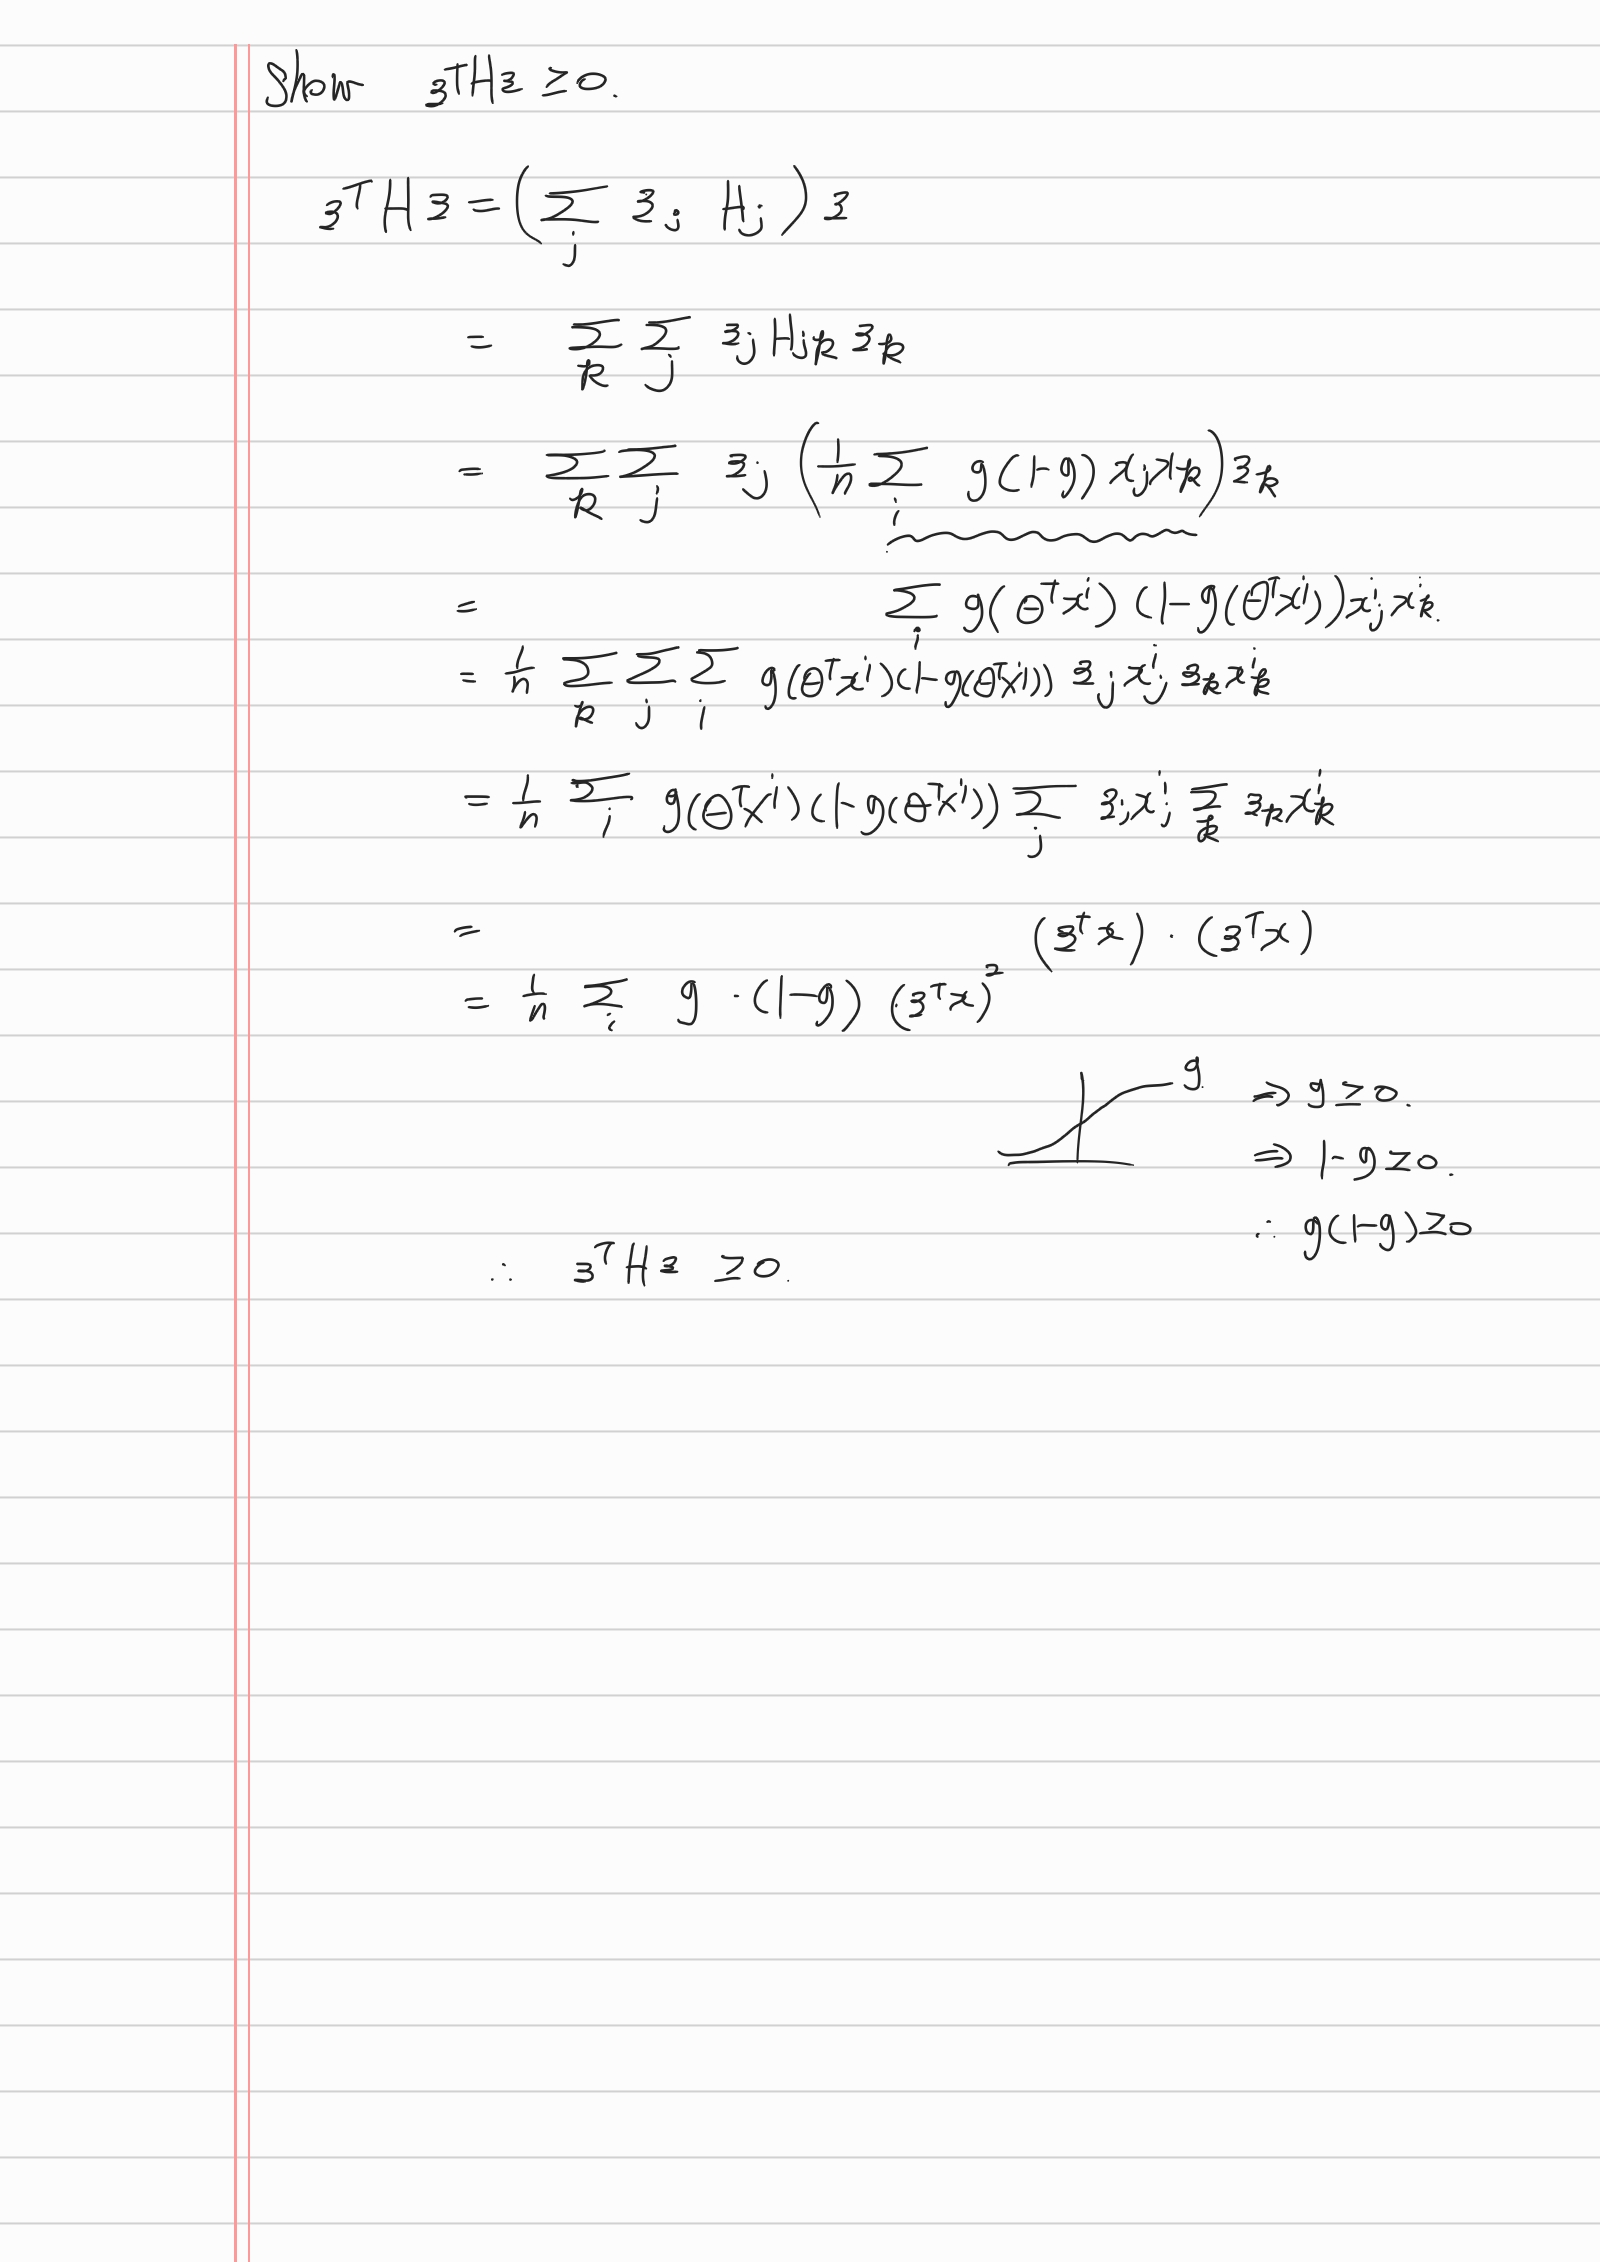 Show zᵀHz ≥ 0.
zᵀHz = (Σ_j z_j H_j) z
= Σ_k Σ_j z_j H_jk z_k
= Σ_k Σ_j z_j (1/n Σ_i g(1-g) x_j x_k) z_k
= Σ_i g(θᵀxⁱ) (1-g(θᵀxⁱ)) xⁱ_j xⁱ_k.
= 1/n Σ_k Σ_j Σ_i g(θᵀxⁱ)(1-g(θᵀxⁱ)) z_j xⁱ_j z_k xⁱ_k
= 1/n Σ_i g(θᵀxⁱ)(1-g(θᵀxⁱ)) Σ_j z_j xⁱ_j Σ_k z_k xⁱ_k
= (zᵀx) · (zᵀx)
= 1/n Σ_i g · (1-g) (zᵀx)²
g
⇒ g ≥ 0.
⇒ 1-g ≥ 0.
∴ g(1-g) ≥ 0
∴ zᵀHz ≥ 0.